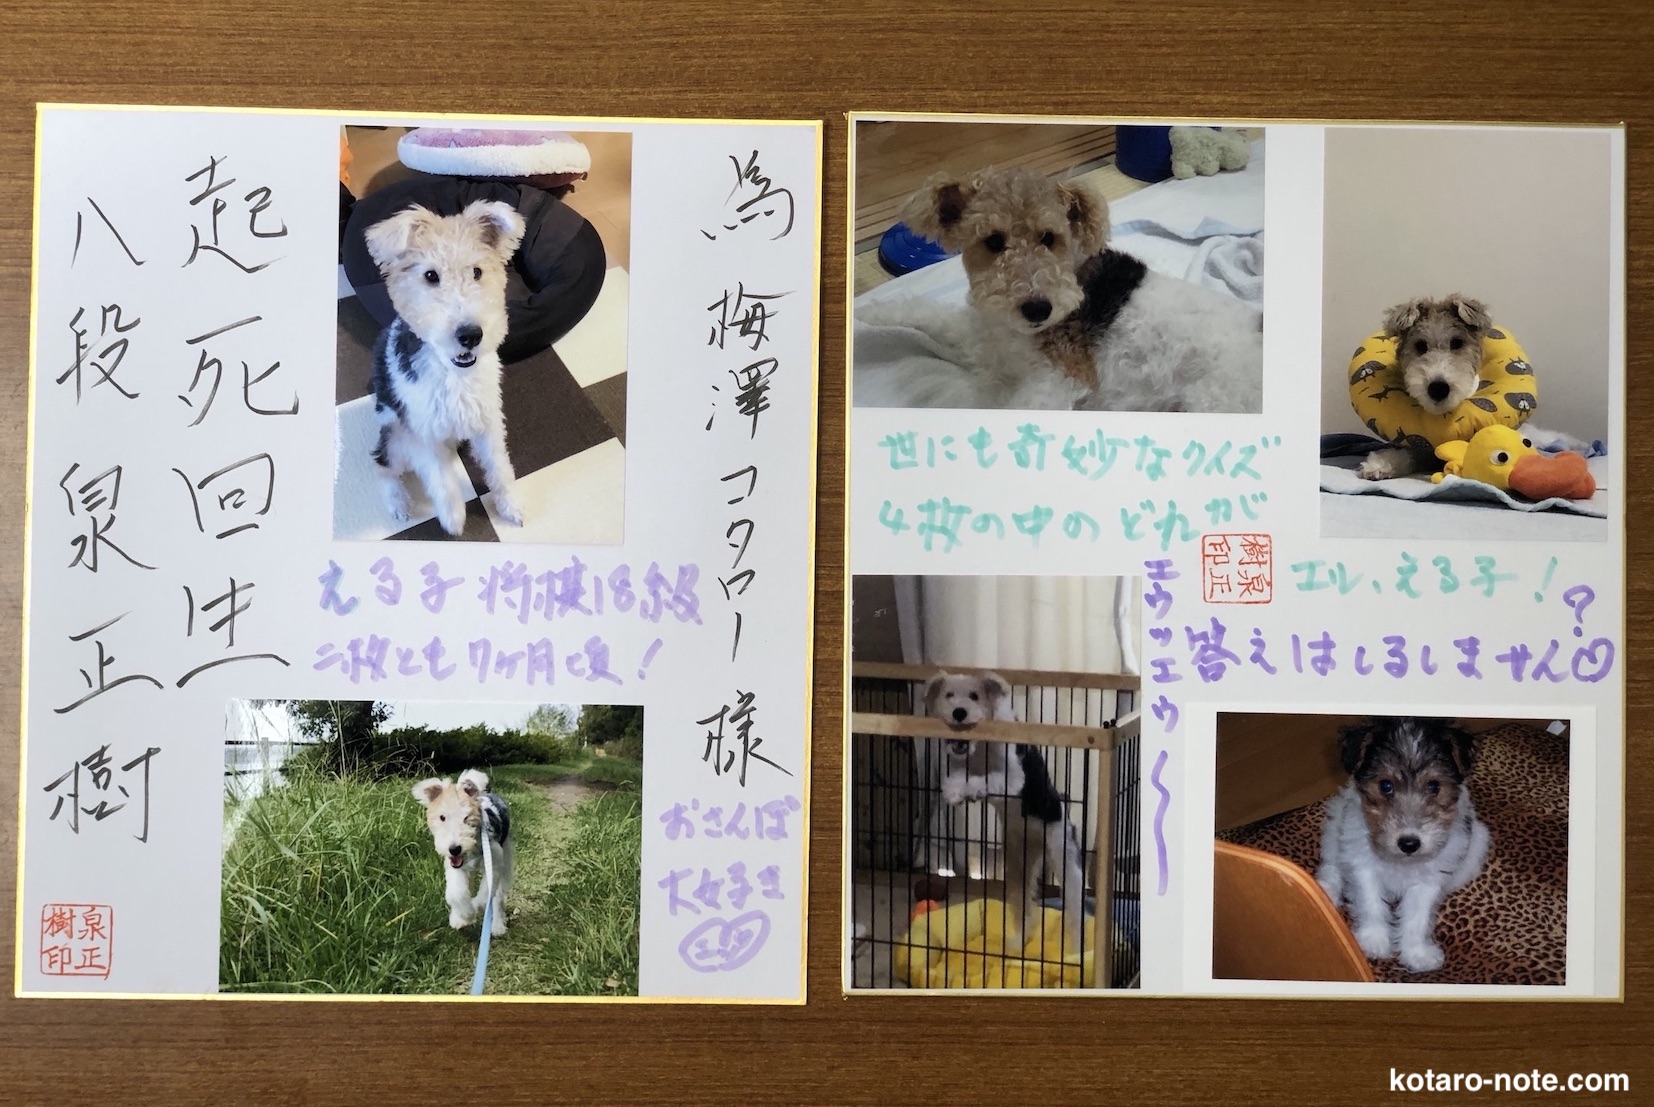 為 梅澤コタロー 様
起死回生
八段 泉 正樹
泉正樹印
える子 将棋18級
二枚とも7ヶ月頃!
おさんぽ
大好き
世にも奇妙なクイズ
4枚の中のどれが
エル、える子!?
泉正樹印
答えはしるしません
エウッエウ〜
kotaro-note.com